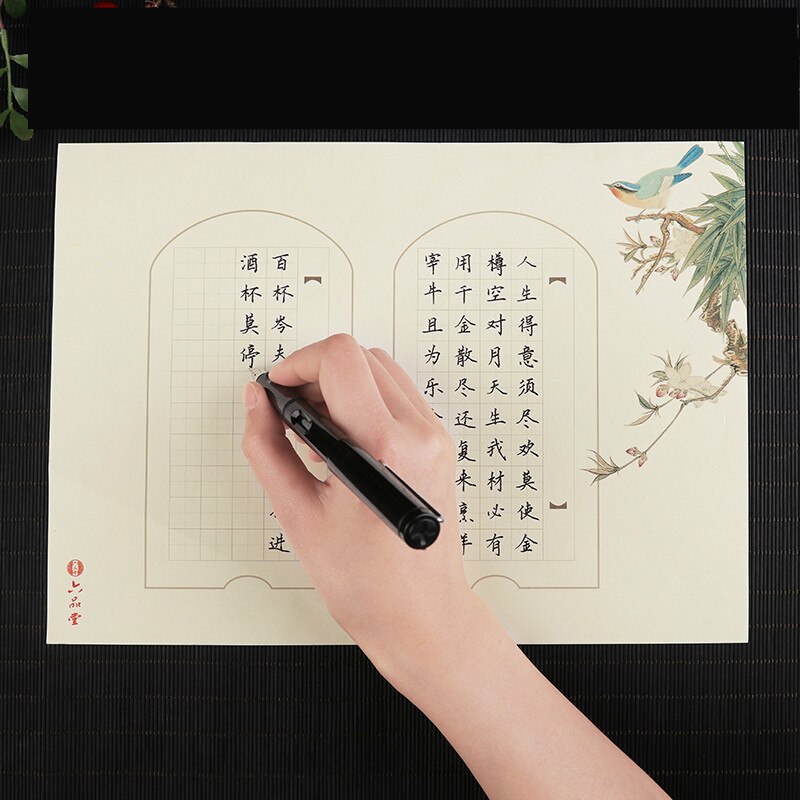 人生得意须尽欢莫使金
樽空对月天生我材必有
用千金散尽还复来烹羊
宰牛且为乐
百杯岑夫进
酒杯莫停
六品堂